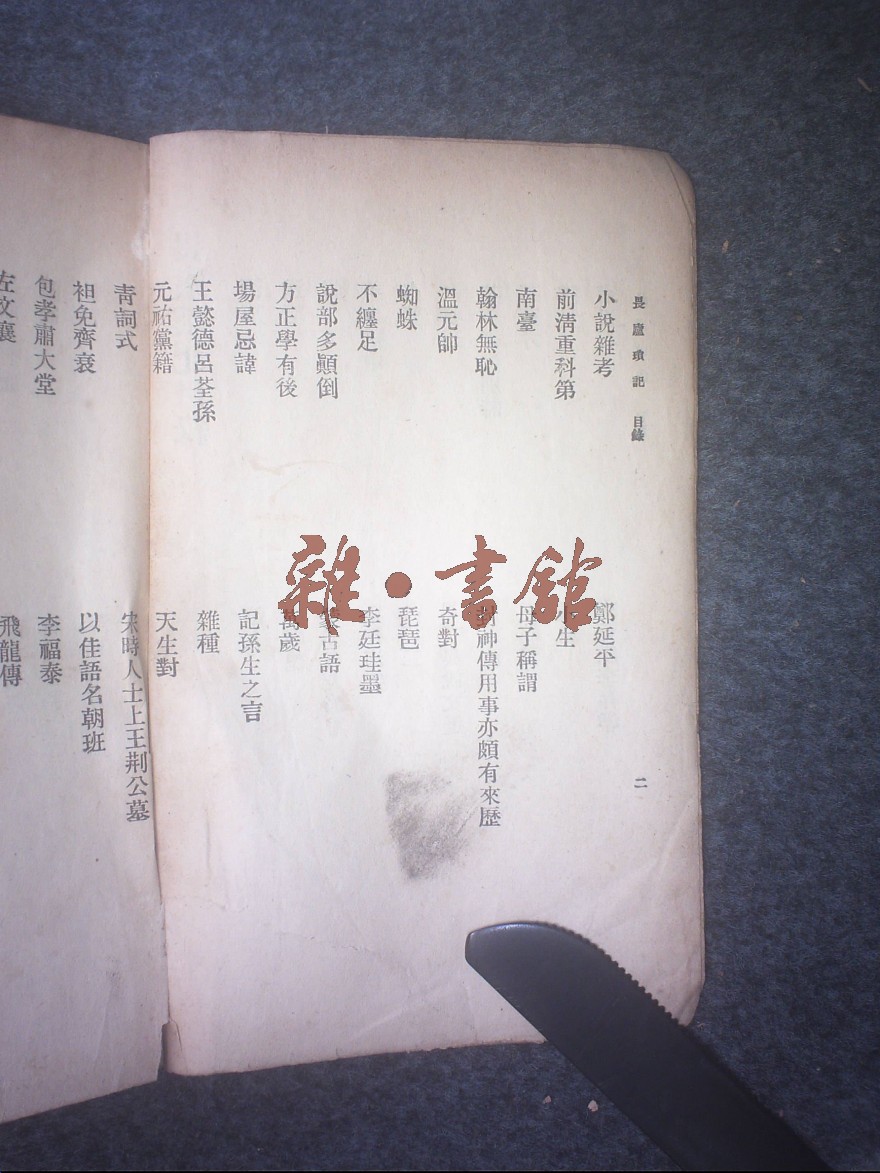 長廬瑣記 目錄 二
小說雜考 鄭延平
前清重科第 生
南臺 母子稱謂
翰林無恥 封神傳用事亦頗有來歷
溫元帥 奇對
蜘蛛 琵琶
不纏足 李廷珪墨
說部多顚倒 蒙古語
方正學有後 萬歲
場屋忌諱 記孫生之言
王懿德呂荃孫 雜種
元祐黨籍 天生對
靑詞式 宋時人士上王荆公墓
袒免齊衰 以佳語名朝班
包孝肅大堂 李福泰
左文襄 飛龍傳
雜•書館